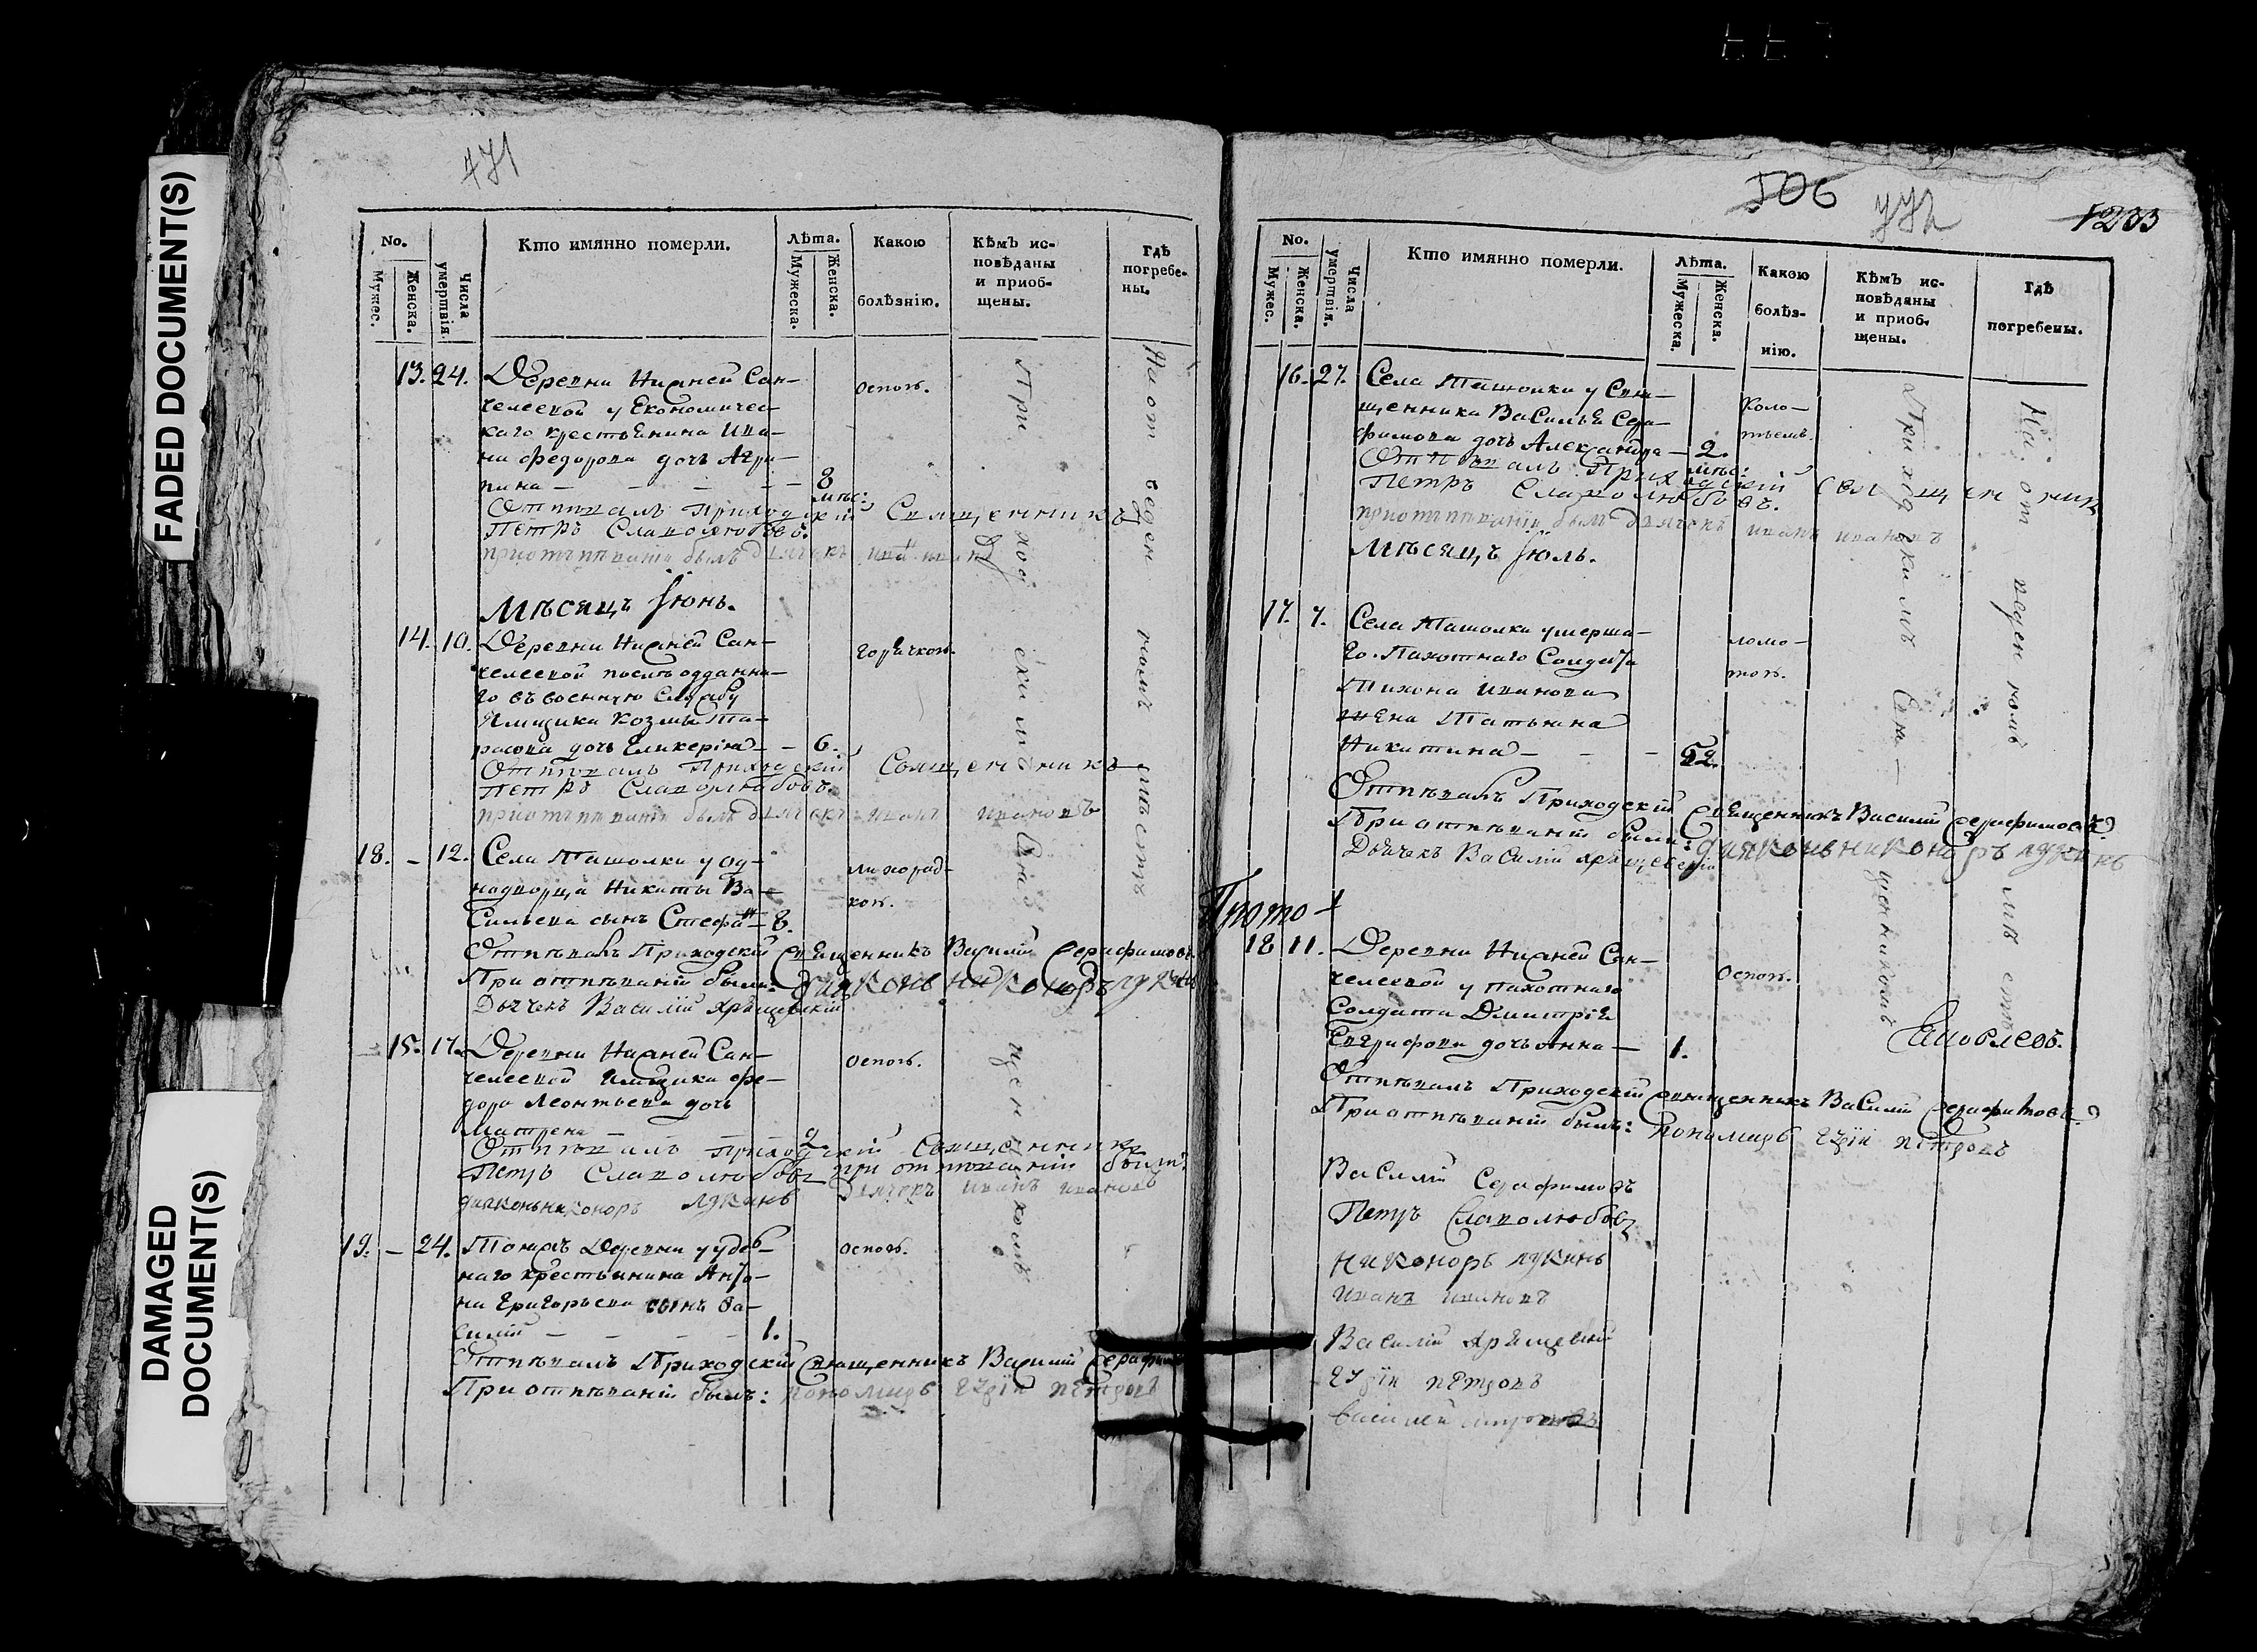 FADED DOCUMENT(S)
DAMAGED
DOCUMENT(S)
471
No.
Мужес.
Женска.
Числа
умертвія.
Кто имянно померли.
Лѣта.
Мужеска.
Женска.
Какою
болѣзнію.
Кѣмъ ис-
повѣданы
и приоб-
щены.
Гдѣ
погребе-
ны.
13. 24. Деревни Нижней Сан-
челеевой у Економичес-
каго крестьянина Ива-
на Федорова дочь Агри-
пина — 8
мѣс:
оспою.
Отпѣвалъ Приходскій Священникъ
Петръ Славолюбовъ.
приотпѣваніи былъ дьячекъ иванъ ивановъ
Мѣсяцъ Іюнь.
14. 10. Деревни Нижней Сан-
челеевой послѣ отданна-
го въ военную службу
Ямщика Козмы Та-
расова дочь Гликерія — 6.
горячкою.
Отпѣвалъ Приходскій Священникъ
Петръ Славолюбовъ.
приотпѣваніи былъ дьячекъ иванъ ивановъ
18. — 12. Села Ташолки у од-
нодворца Никиты Ва-
сильева сынъ Стефанъ 8.
лихорад-
кою.
Отпѣвалъ Приходскій Священникъ Василій Серафимовъ
При отпѣваніи были: диаконъ никоноръ лукинъ
Дьячекъ Василій Хрящевскій
15. 17. Деревни Нижней Сан-
челеевой ямщика Фе-
дора Леонтьева дочь
Матрена — 2.
оспою.
Отпѣвалъ Приходскій Священникъ
Петръ Славолюбовъ при отпѣваніи были
диаконъ никоноръ лукинъ дьячекъ иванъ ивановъ
19. — 24. Тояжъ Деревни у удѣль-
наго крестьянина Анто-
на Григорьева сынъ Ва-
силій — 1.
оспою.
Отпѣвалъ Приходскій Священникъ Василій Серафим
При отпѣваніи былъ: пономарь петровъ
Приходскимъ Священникомъ
На отведенномъ мѣстѣ
506
472
1233
No.
Мужес.
Женска.
Числа
умертвія.
Кто имянно померли.
Лѣта.
Мужеска.
Женска.
Какою
болѣз-
нію.
Кѣмъ ис-
повѣданы
и приоб-
щены.
Гдѣ
погребены.
16. 27. Села Ташолки у Свя-
щенника Василья Сера-
фимова дочь Александра — 2.
мѣс:
коло-
тьемъ.
Отпѣвалъ Приходскій Священник
Петръ Славолюбовъ.
приотпѣваніи былъ дьячекъ иванъ ивановъ
Мѣсяцъ Іюль.
17. 7. Села Ташолки умерша-
го Пахотнаго Солдата
Тихона Иванова
жена Татьяна
Никитина — 52.
ломо-
тою.
Отпѣвалъ Приходскій Священникъ Василій Серафимовъ
При отпѣваніи были: диаконъ никоноръ лукинъ
Дьячекъ Василій Хрящевскій
Прото-
18 11. Деревни Нижней Сан-
челеевой у пахотнаго
Солдата Димитрія
Евграфова дочь Анна — 1.
оспою.
Отпѣвалъ Приходскій Священникъ Василій Серафимовъ
При отпѣваніи былъ: пономарь петровъ
Приходскимъ Священникомъ
На отведенномъ мѣстѣ
Василій Серафимовъ
Петръ Славолюбовъ
никоноръ лукинъ
иванъ ивановъ
Василій Хрящевскій
петровъ
василей